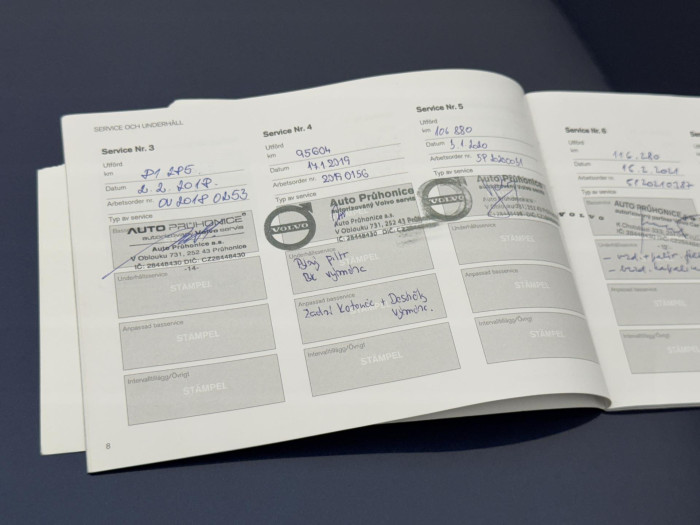 SERVICE OCH UNDERHÅLL
Service Nr. 3
Utförd
km 81 285
Datum 2. 2. 2018.
Arbetsorder nr. OV 2018 0253
Typ av service
AUTO PRŮHONICE
autorizovaný Volvo servis
Auto Průhonice a.s.
V Oblouku 731, 252 43 Průhonice
IČ: 28448430 DIČ: CZ28448430
-14-
Underhållsservice
STÄMPEL
Anpassad basservice
STÄMPEL
Intervalltillägg/Övrigt
STÄMPEL
8
Service Nr. 4
Utförd
km 95604
Datum 14.1.2019
Arbetsorder nr. 20190156
Typ av service
VOLVO
Auto Průhonice
Autorizovaný Volvo servis
Auto Průhonice a.s.
V Oblouku 731, 252 43
IČ: 28448430
Underhållsservice
STÄMPEL
filtr
výměna
Anpassad basservice
Zadní kotouče +
výměna.
Intervalltillägg/Övrigt
STÄMPEL
Service Nr. 5
Utförd
km 106 280
Datum 3.1.2020
Arbetsorder nr.
Typ av service
VOLVO
Auto Průhonice
Underhållsservice
STÄMPEL
Anpassad basservice
STÄMPEL
Intervalltillägg/Övrigt
STÄMPEL
Service Nr. 6
Utförd
km 116.280
Datum 15.2.2021
Arbetsorder nr.
Typ av service
VOLVO
AUTO PRŮHONICE
Underhållsservice
Anpassad basservice
STÄMPEL
Intervalltillägg/Övrigt
STÄMPEL